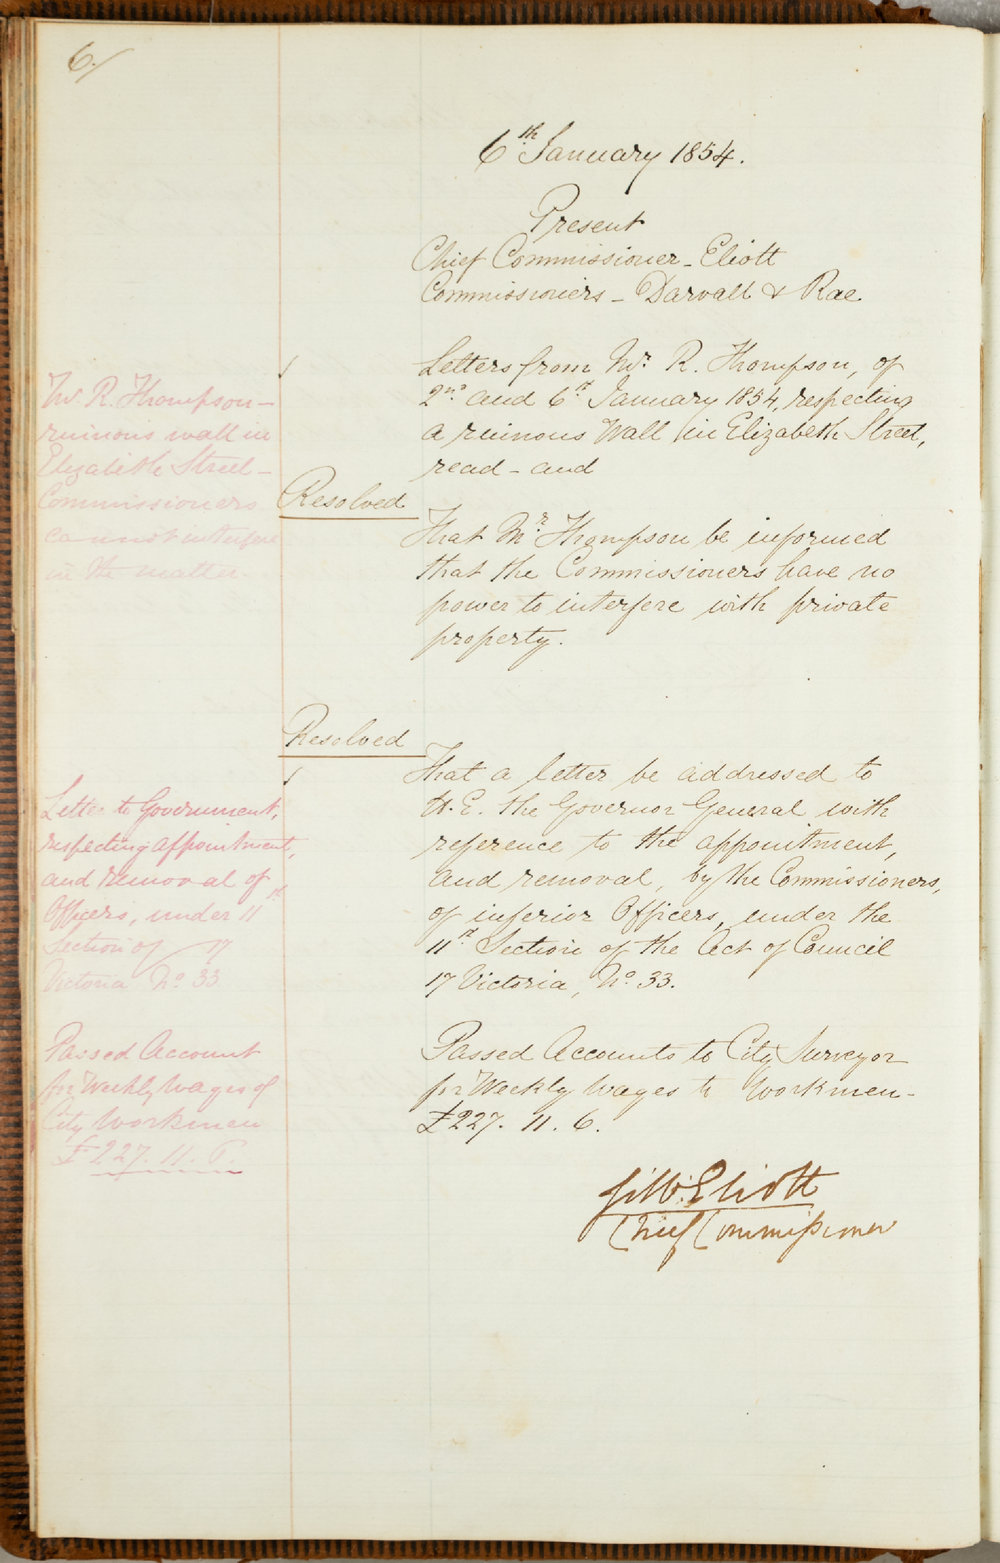 6/
6th January 1854.
Present
Chief Commissioner - Eliott
Commissioners - Darvall & Rae
Letters from Mr. R. Thompson, of
2nd. and 6th January 1854, respecting
a ruinous Wall in Elizabeth Street,
read - and
Mr R. Thompson -
ruinous wall in
Elizabeth Street -
Commissioners
cannot interfere
in the matter.
Resolved
That Mr. Thompson be informed
that the Commissioners have no
power to interfere with private
property.
Resolved
That a letter be addressed to
H. E. the Governor General with
reference to the appointment,
and removal, by the Commissioners,
of inferior Officers, under the
11th Section of the Act of Council
17 Victoria, No. 33.
Letter to Government,
respecting appointment,
and removal of
Officers, under 11th
Section of 17
Victoria No. 33
Passed Accounts to City Surveyor
for Weekly Wages to Workmen -
£227. 11. 6.
Passed Account
for Weekly Wages of
City Workmen
£227. 11. 6.
Eliott
Chief Commissioner